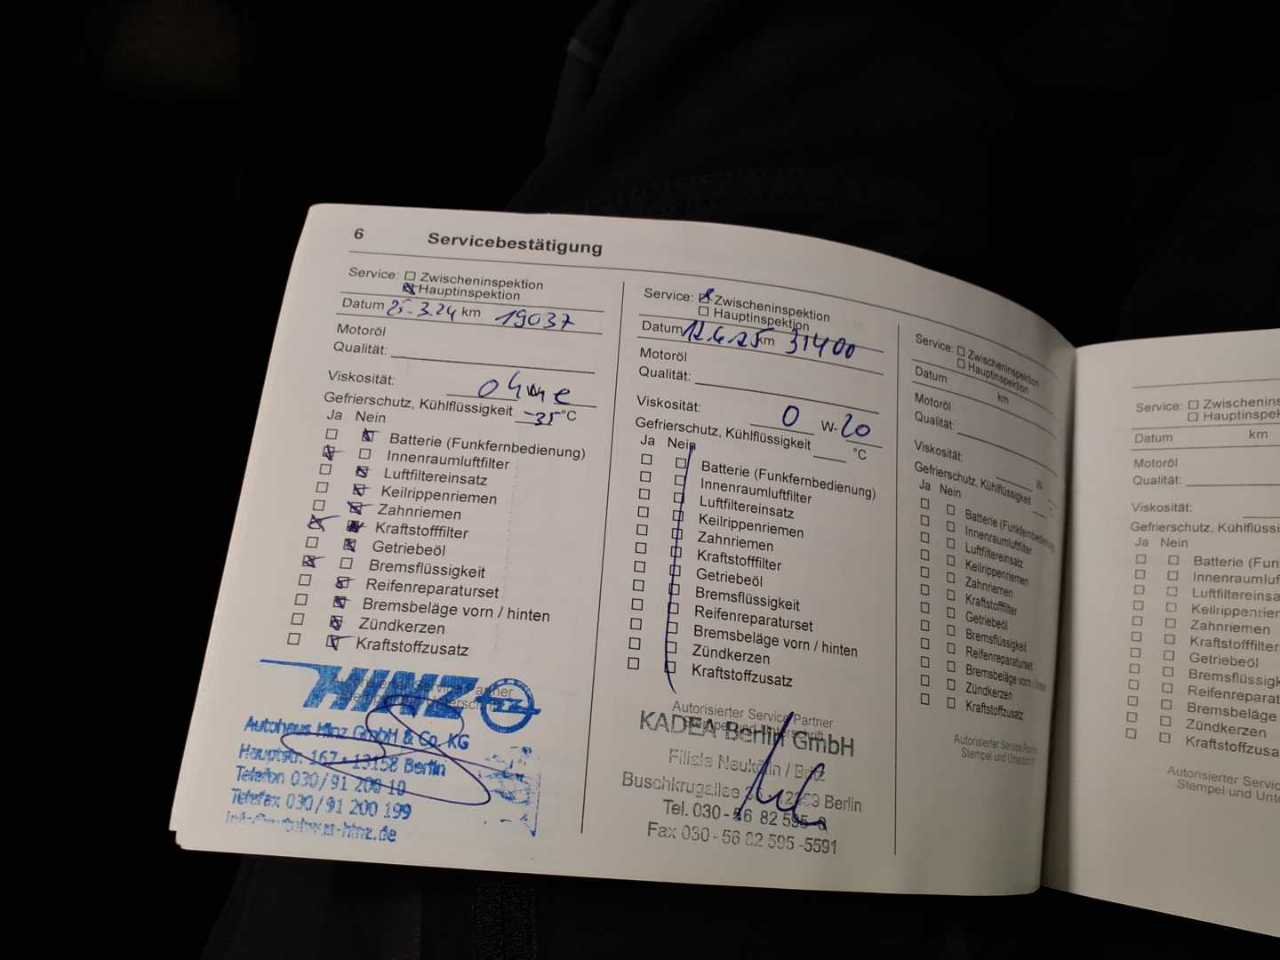 6 Servicebestätigung
Service: Zwischeninspektion
Hauptinspektion
Datum 25.3.24 km 19037
Motoröl
Qualität:
Viskosität: ohne
Gefrierschutz, Kühlflüssigkeit -35 °C
Ja Nein
Batterie (Funkfernbedienung)
Innenraumluftfilter
Luftfiltereinsatz
Keilrippenriemen
Zahnriemen
Kraftstofffilter
Getriebeöl
Bremsflüssigkeit
Reifenreparaturset
Bremsbeläge vorn / hinten
Zündkerzen
Kraftstoffzusatz
HINZ
Autohaus Hinz GmbH & Co. KG
Hauptstr. 167 · 13158 Berlin
Telefon 030 / 91 200 10
Telefax 030 / 91 200 199
Service: Zwischeninspektion
Hauptinspektion
Datum 12.6.25 km 31400
Motoröl
Qualität:
Viskosität: 0 W- 20
Gefrierschutz, Kühlflüssigkeit °C
Ja Nein
Batterie (Funkfernbedienung)
Innenraumluftfilter
Luftfiltereinsatz
Keilrippenriemen
Zahnriemen
Kraftstofffilter
Getriebeöl
Bremsflüssigkeit
Reifenreparaturset
Bremsbeläge vorn / hinten
Zündkerzen
Kraftstoffzusatz
Autorisierter Service Partner
KADEA Berlin GmbH
Filiale Neukölln / Britz
Buschkrugallee Berlin
Tel. 030 - 56 82 595
Fax 030 - 56 82 595 -5591
Service: Zwischeninspektion
Hauptinspektion
Datum km
Motoröl
Qualität:
Viskosität: W-
Gefrierschutz, Kühlflüssigkeit
Ja Nein
Batterie (Funkfernbedienung
Innenraumluftfilter
Luftfiltereinsatz
Keilrippenriemen
Zahnriemen
Kraftstofffilter
Getriebeöl
Bremsflüssigkeit
Reifenreparaturset
Bremsbeläge vorn / hinten
Zündkerzen
Kraftstoffzusatz
Autorisierter Service Partner
Stempel und Unterschrift
Service: Zwischeninspe
Hauptinspektion
Datum km
Motoröl
Qualität:
Viskosität:
Gefrierschutz, Kühlflüssi
Ja Nein
Batterie (Fun
Innenraumluft
Luftfiltereinsa
Keilrippenrier
Zahnriemen
Kraftstofffilter
Getriebeöl
Bremsflüssig
Reifenreparat
Bremsbeläge
Zündkerzen
Kraftstoffzusa
Autorisierter Service
Stempel und Unte